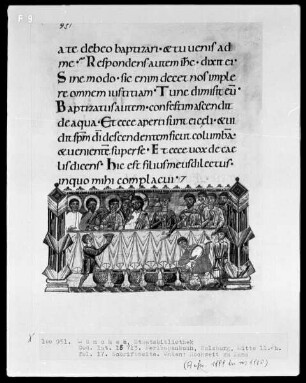 F 9
951
a te debeo baptizari. & tu uenis ad
me. Respondens autem ihc. dixit ei
Sine modo. sic enim decet nos imple
re omnem iustitiam. Tunc dimisit eu.
Baptizatus autem. confestim ascendit
de aqua. Et ecce aperti sunt ei celi. & ui
dit spm di descendentem sicut columba.
& uenientē super se. Et ecce uox de cae
lis dicens. Hic est filius meus dilectus.
in quo mihi complacui.
low 951. München, Staatsbibliothek
Cod. lat. 15 713. Perikopenbuch, Salzburg, Mitte 11.Jh.
fol. 17. Schriftseite. Unten: Hochzeit zu Kana